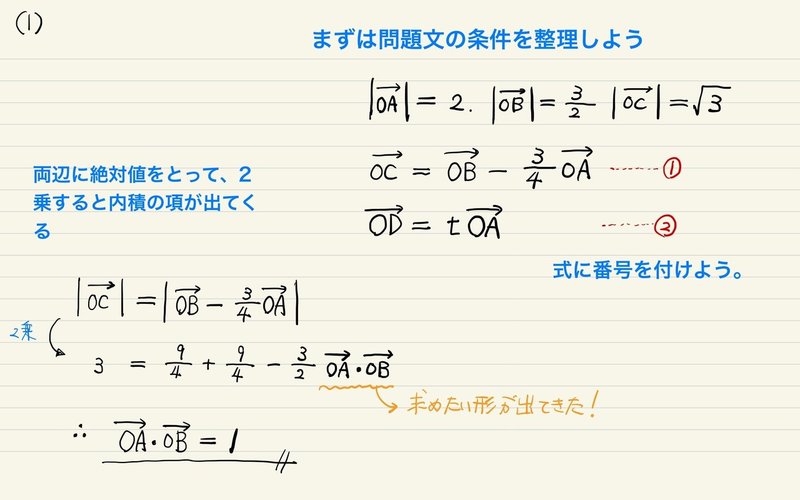 (1)
まずは問題文の条件を整理しよう
|OA→| = 2. |OB→| = 3/2 |OC→| = √3
OC→ = OB→ - 3/4 OA→ ------ ①
OD→ = t OA→ ------ ②
式に番号を付けよう。
両辺に絶対値をとって、2
乗すると内積の項が出てく
る
|OC→| = |OB→ - 3/4 OA→|
2乗
3 = 9/4 + 9/4 - 3/2 OA→・OB→
求めたい形が出てきた!
∴ OA→・OB→ = 1